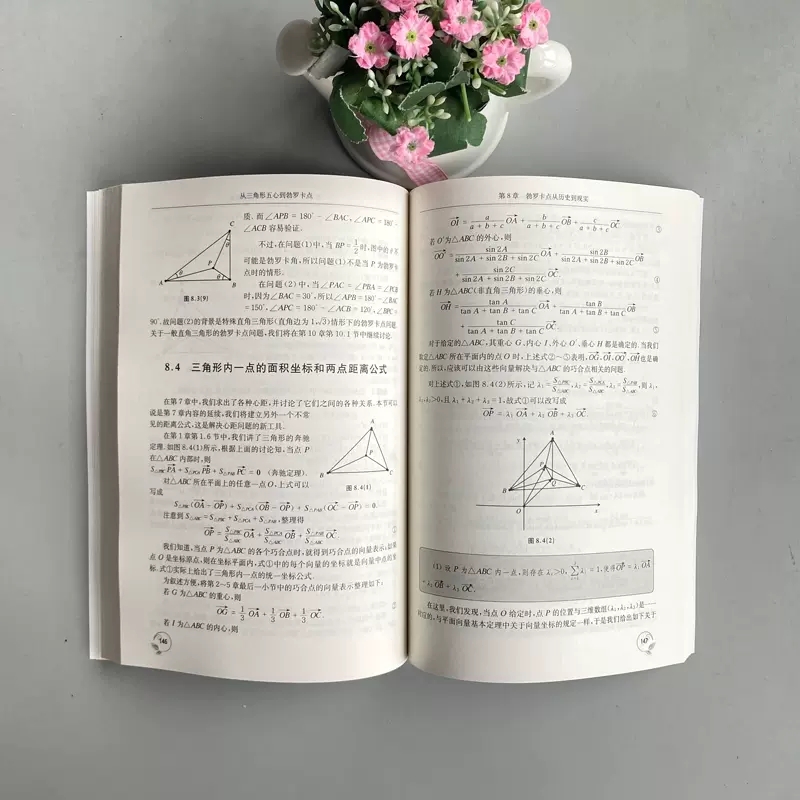 从三角形五心到勃罗卡点
质. 而∠APB = 180° − ∠BAC, ∠APC = 180° −
∠ACB 容易验证.
不过,在问题(1)中,当 BP = 1/2 时,图中的 θ 不
可能是勃罗卡角,所以问题(1)不是当 P 为勃罗卡
点时的情形.
在问题(2)中,当∠PAC = ∠PBA = ∠PCB
时,因为∠BAC = 30°,所以∠APB = 180° − ∠BAC
= 150°, ∠APC = 180° − ∠ACB = 120°, ∠BPC =
A
B
C
P
θ
θ
θ
图 8.3(9)
90°. 故问题(2)的背景是特殊直角三角形(直角边为 1,√3)情形下的勃罗卡点问题.
关于一般直角三角形的勃罗卡点问题,我们将在第 10 章第 10.1 节中继续讨论.
8.4 三角形内一点的面积坐标和两点距离公式
在第 7 章中,我们求出了各种心距,并讨论了它们之间的各种关系. 本节可以
说是第 7 章内容的延续,我们将建立另外一个不常
见的距离公式,这是解决心距问题的新工具.
在第 1 章第 1.6 节中,我们讲了三角形的奔驰
定理. 如图 8.4(1)所示,根据上面的讨论知,当点 P
在△ABC 内部时,则
S△PBC PA + S△PCA PB + S△PAB PC = 0 (奔驰定理).
对△ABC 所在平面上的任意一点 O,上式可以
写成
A
B
C
P
图 8.4(1)
S△PBC (OA − OP) + S△PCA (OB − OP) + S△PAB (OC − OP) = 0.
注意到 S△ABC = S△PBC + S△PCA + S△PAB,整理得
OP = S△PBC/S△ABC OA + S△PCA/S△ABC OB + S△PAB/S△ABC OC.
我们知道,当点 P 为△ABC 的各个巧合点时,就得到巧合点的向量表示,如果
点 O 是坐标原点,则在坐标平面内,式①中的每个向量的坐标就是向量中点的坐
标. 式①实际上给出了三角形内一点的统一坐标公式.
为叙述方便,将第 2~5 章最后一小节中的巧合点的向量表示整理如下:
若 G 为△ABC 的重心,则
OG = 1/3 OA + 1/3 OB + 1/3 OC. ②
若 I 为△ABC 的内心,则
146
第 8 章 勃罗卡点从历史到现实
OI = a/(a + b + c) OA + b/(a + b + c) OB + c/(a + b + c) OC. ③
若 O′为△ABC 的外心,则
OO′ = sin 2A/(sin 2A + sin 2B + sin 2C) OA + sin 2B/(sin 2A + sin 2B + sin 2C) OB
+ sin 2C/(sin 2A + sin 2B + sin 2C) OC. ④
若 H 为△ABC(非直角三角形)的垂心,则
OH = tan A/(tan A + tan B + tan C) OA + tan B/(tan A + tan B + tan C) OB
+ tan C/(tan A + tan B + tan C) OC. ⑤
对于给定的△ABC,其重心 G、内心 I、外心 O′、垂心 H 都是确定的. 当我们
取定△ABC 所在平面内的点 O 时,上述式②~⑤表明,OG、OI、OO′、OH 也是确
定的. 所以,应该可以由这些向量解决与△ABC 的巧合点相关的问题.
对上述式①,如图 8.4(2)所示,记 λ₁ = S△PBC/S△ABC, λ₂ = S△PCA/S△ABC, λ₃ = S△PAB/S△ABC, 则 λ₁,
λ₂, λ₃ > 0, 且 λ₁ + λ₂ + λ₃ = 1, 故式①可以改写成
OP = λ₁ OA + λ₂ OB + λ₃ OC. ⑥
y
A
P
B
Q
C
O
x
图 8.4(2)
(1) 设 P 为△ABC 内一点,则存在 λᵢ > 0, ∑λᵢ = 1, 使得 OP = λ₁ OA
+ λ₂ OB + λ₃ OC.
在这里,我们发现,当点 O 给定时,点 P 的位置与三维数组(λ₁, λ₂, λ₃)是一一
对应的,与平面向量基本定理中关于向量坐标的规定一样,于是我们给出如下关于
147